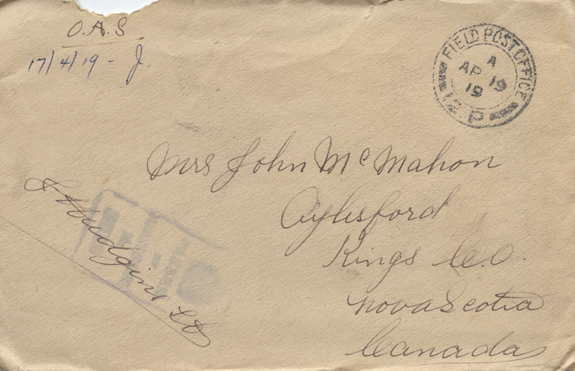 O.A.S.
17/4/19 - J.
FIELD POST OFFICE
A
AP 19
19
D.P.
Mrs John McMahon
Aylesford
Kings Co.
Nova Scotia
Canada
Hudgins Lt